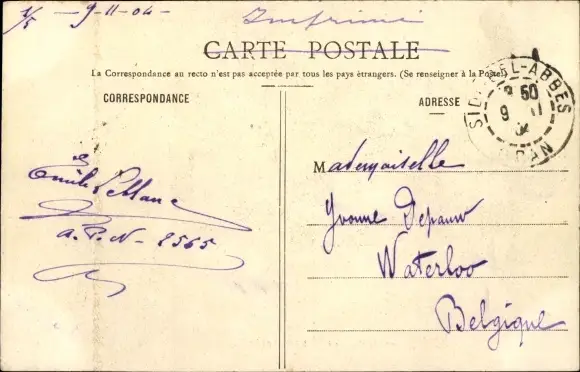 1/5 - 9-11-04-
Imprimé
CARTE POSTALE
La Correspondance au recto n'est pas acceptée par tous les pays étrangers. (Se renseigner à la Poste)
CORRESPONDANCE
ADRESSE
SIDI-BEL-ABBÈS
50
9 11
04
ORAN
Mademoiselle
Yvonne Depauw
Waterloo
Belgique
Emile Leblanc
A.P.N- 2565